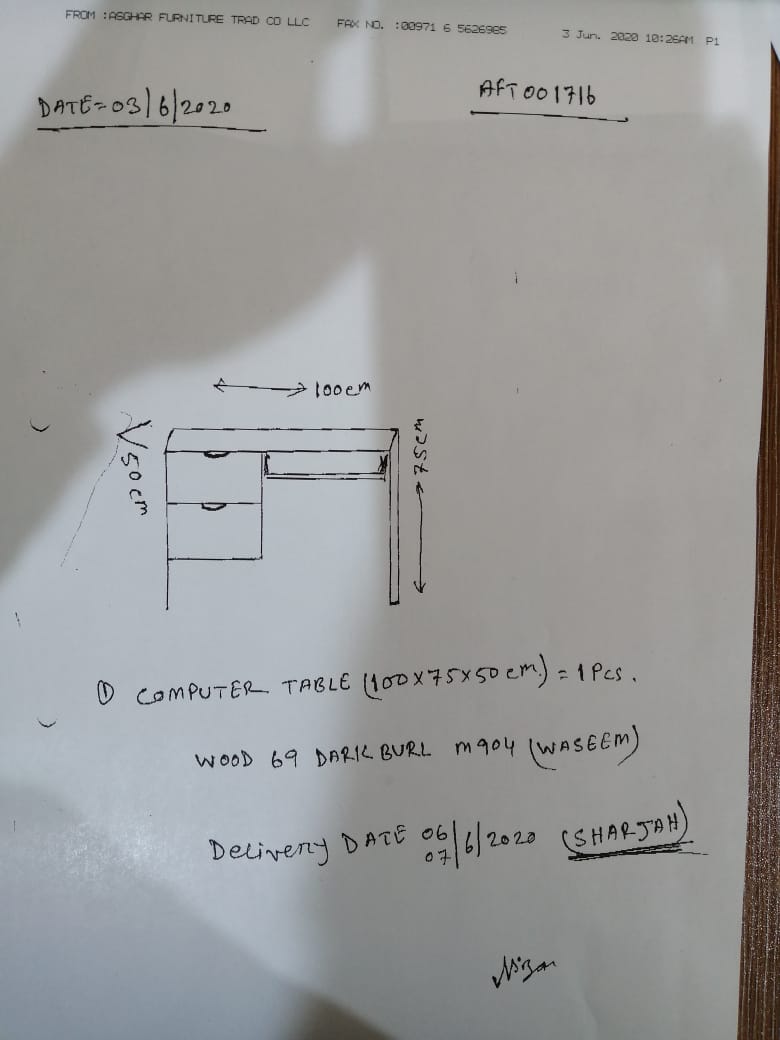 FROM :ASGHAR FURNITURE TRAD CO LLC FAX NO. :00971 6 5626985 3 Jun. 2020 10:26AM P1
DATE=03/6/2020 AFT001716
100cm
75cm
50cm
① COMPUTER TABLE (100X75X50cm) = 1Pcs.
WOOD 69 DARK BURL M904 (WASEEM)
Delivery DATE 06/6/2020 (SHARJAH)
07
Nizam